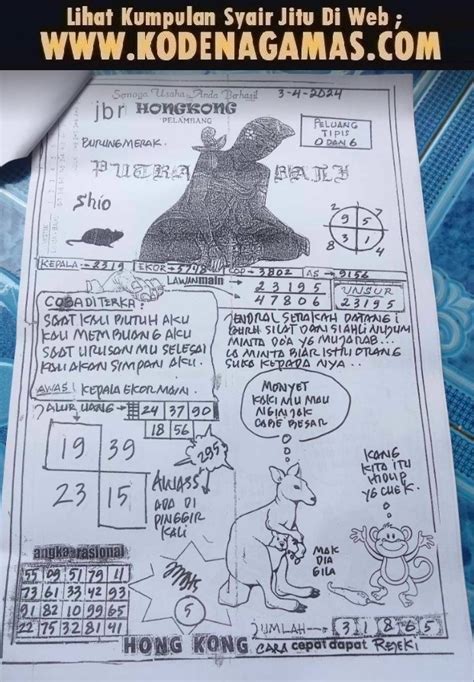 Lihat Kumpulan Syair Jitu Di Web ;
WWW.KODENAGAMAS.COM
Semoga Usaha Anda Berhasil
3-4-2024
jbr HONGKONG
PELAMBANG
BURUNG MERAK.
PELUANG
TIPIS
0 DAN 6
PUTRA BALI
Shio
2 7
9 5
3 1
8 4
KEPALA → 2319 EKOR → 5748 COP → 3802 AS → 9156
LAWAN main
23195
47806
UNSUR
23195
COBA DI TERKA:
SAAT KAU BUTUH AKU
KAU MEMBUANG AKU
SAAT URUSAN MU SELESAI
KAU AKAN SIMPAN AKU.
AWAS! KEPALA EKOR MAIN.
JENDRAL SERAKAH DATANG I
MINTA DOA YG MUJARAB...
IA MINTA BIAR ISTRI ORANG
SUKA KEPADA NYA..
JALUR UANG → 24 37 90
18 56
MONYET
KAKI MU MAU
NGINJAK
CABE BESAR
19 39
23 15
295
AWASS
ADA DI
PINGGIR
KALI
KANG
KITA ITU
HIDUP
YG CUEK.
MAK
DIA
GILA
angka rasional
55 09 51 79 11
73 61 33 42 93
91 82 10 99 65
22 75 32 81 41
5
JUMLAH → 3 1 8 6 5
HONG KONG CARA cepat dapat REJEKI